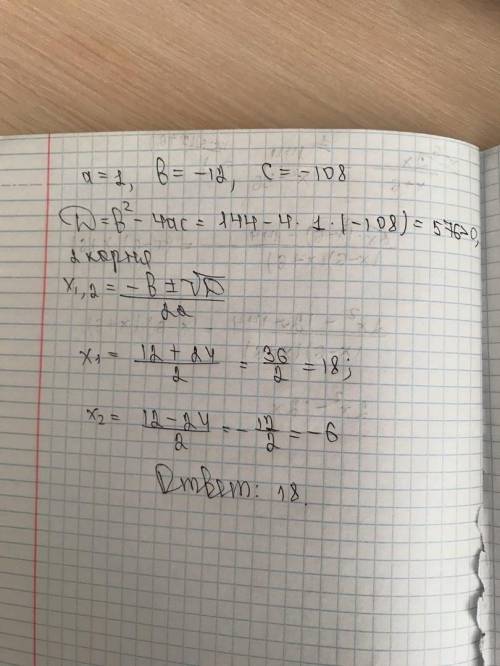 a = 1, b = -12, c = -108
D = b² - 4ac = 144 - 4 · 1 · (-108) = 576 > 0,
2 корня
x₁,₂ = (-b ± √D) / 2a
x₁ = (12 + 24) / 2 = 36 / 2 = 18;
x₂ = (12 - 24) / 2 = - 12 / 2 = -6
Ответ: 18.